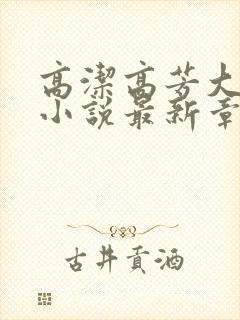 高潔高芳大
小說最新章
古井貢酒